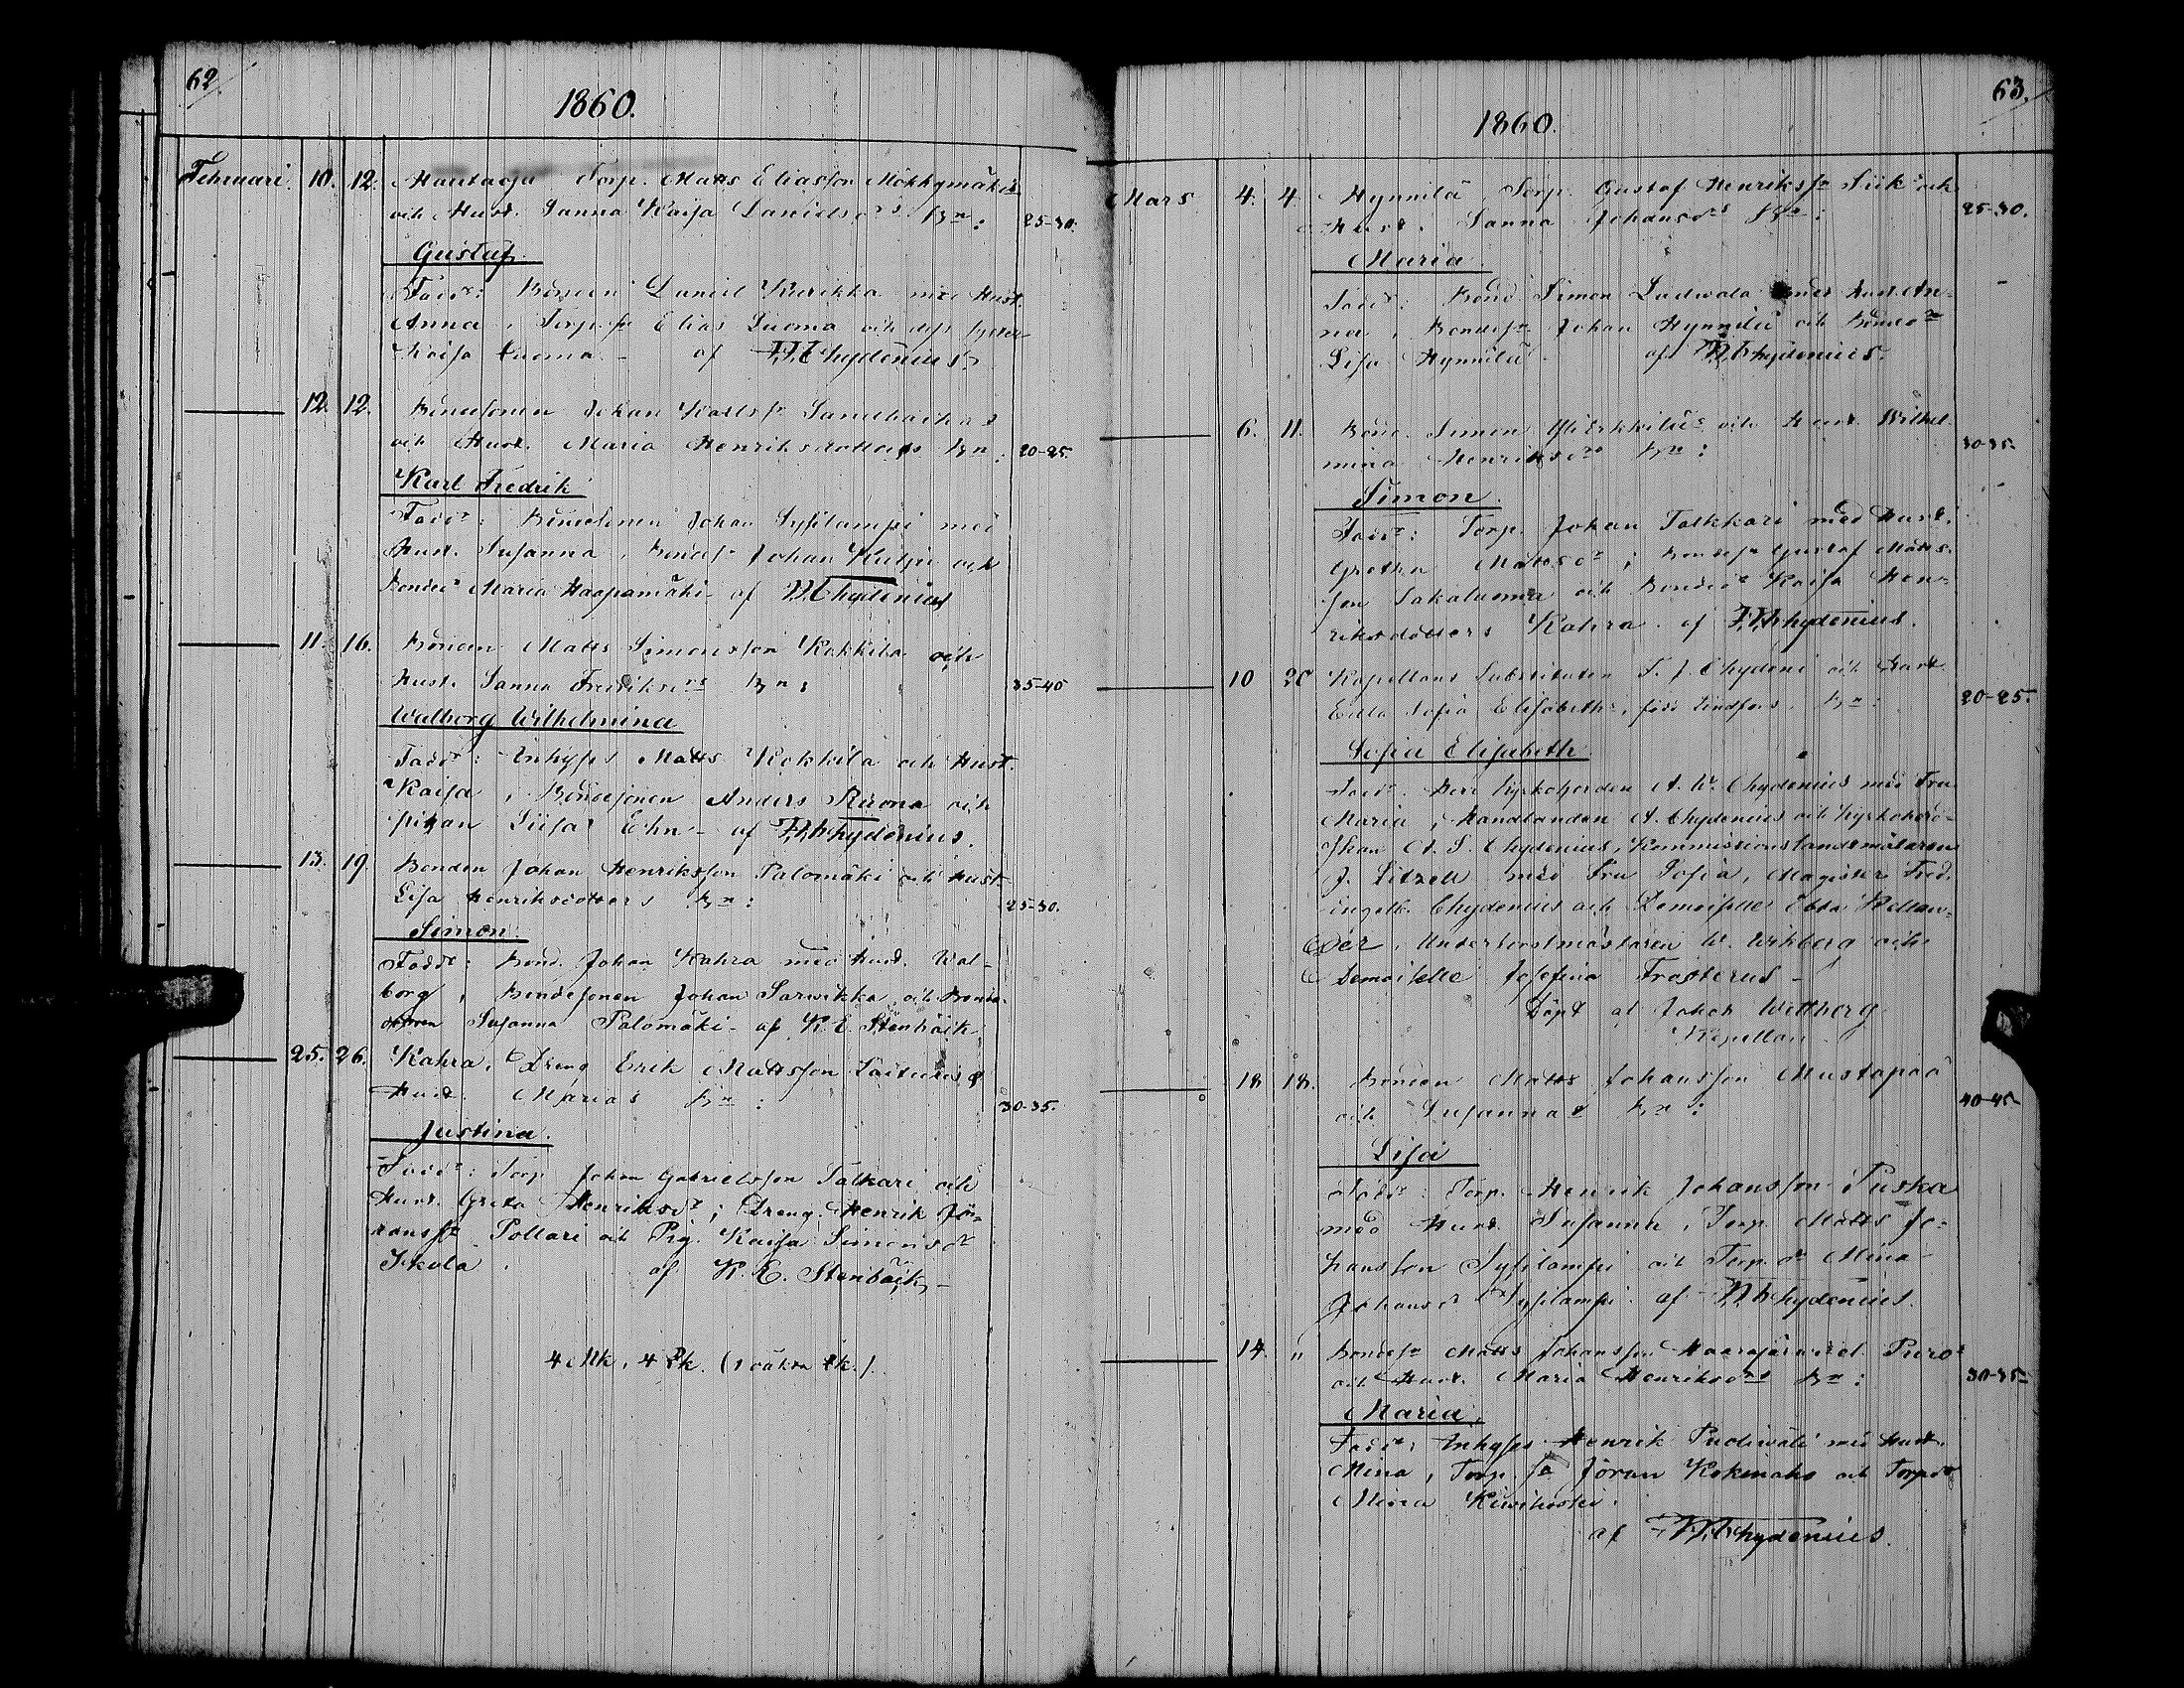 62
1860.
Februari. 10. 12. Torp. Matts Eliasson Mökkymäki
och Hust. Sanna Kaisa Danielsdrs Bn: 25-30.
Gustaf
Fadd: Bonden Daniel Kurikka med Hust.
Anna, Torp. sn Elias Luoma och dess syster
Kaisa Luoma - af Chydenius.
12. 12. Bondesonen Johan Karlss
och Hust. Maria Henriksdotters Bn: 20-25.
Karl Fredrik
Fadd: Bondesonen Johan Sysilampi med
Hust. Susanna, Bondes Johan och
Bonded Maria Haapamäki - af Chydenius
11. 16. Bonden Matts Simonsson Kokkila och
Hust. Sanna Fredriksdrs Bn: 35-40
Walborg Wilhelmina
Fadd: Inhyses Matts Kokkila och Hust.
Kaisa, Bondesonen Anders och
pigan Liisa Ehn - af Chydenius.
13. 19. Bonden Johan Henriksson Palomäki och Hust.
Lisa Henriksdotters Bn: 25-30.
Simon.
Fadd: Bond. Johan Kahra med Hust. Wal-
borg, Bondesonen Johan Sarwikka och Bonde-
Susanna Palomäki - af K. E. Stenbäck
25. 26. Kahra, Dreng Erik Mattsson
Hust. Marias Bn: 30-35.
Justina.
Fadd: Torp. Johan Gabrielsson Talkari och
Hust. Greta Henriksdr; Dreng. Henrik Jö-
ranssn Pollari och Pig. Kaisa Simonsdr
Ikola. af K. E. Stenbäck -
4 Mk. 4 Qk. (1 oäkta Qk.).
63.
1860.
Mars 4. 4. Hynnilä Torp. Gustaf Henrikssn och
Hust. Sanna Johansdrs Bn: 25-30.
Maria.
Fadd: Bond Simon med Hust. An-
na, Bondesn Johan Hynnilä och Bonddr
Lisa Hynnilä. af Chydenius.
6. 11. Bond. Simon och Hust. Wilhel-
mina Henriksdrs Bn: 30-35.
Simon.
Fadd: Torp. Johan Talkkari med Hust.
Gretha Mattsdr; Bondesn Gustaf Matts-
son Sakaluoma och Bondedr Kaisa Hen-
riksdotters Kahra. af Chydenius.
10 20 Kapellans Substituten F. J. Chydenii och Hust
Sofia Elisabeths, född Lindfors, Bn: 20-25.
Sofia Elisabeth
Fadd. Herr Kyrkoherden A. W. Chydenius med Fru
Maria, Handlanden A. Chydenius och Kyrkoherd-
A. S. Chydenius, Kommissionslandtmätaren
J. Litzell med Fru Sofia, Magister Fred.
Chydenius och Demoiselle Ebba Rellan-
der, Underforstmästaren W. Wikberg och
Demoiselle Josefina Frosterus -
Döpt af Jakob Wettberg
Kapellan.
18 18. Bonden Matts Johansson Mustapää
och Susannas Bn: 40-45
Lisa
Fadd: Torp. Henrik Johansson Puska
med Hust. Susanna, Torp. Matts Jo-
hansson Sysilampi och Torp. dr Mina
Johansdr Sysilampi. af Chydenius.
14. " Bondesn Matts Johansson
och Hust. Maria Henriksdrs Bn: 30-35
Maria.
Fadd: Inhyses Henrik med Hust.
Mina, Torp. sn Jöran och Torpdr
Miina
af Chydenius.